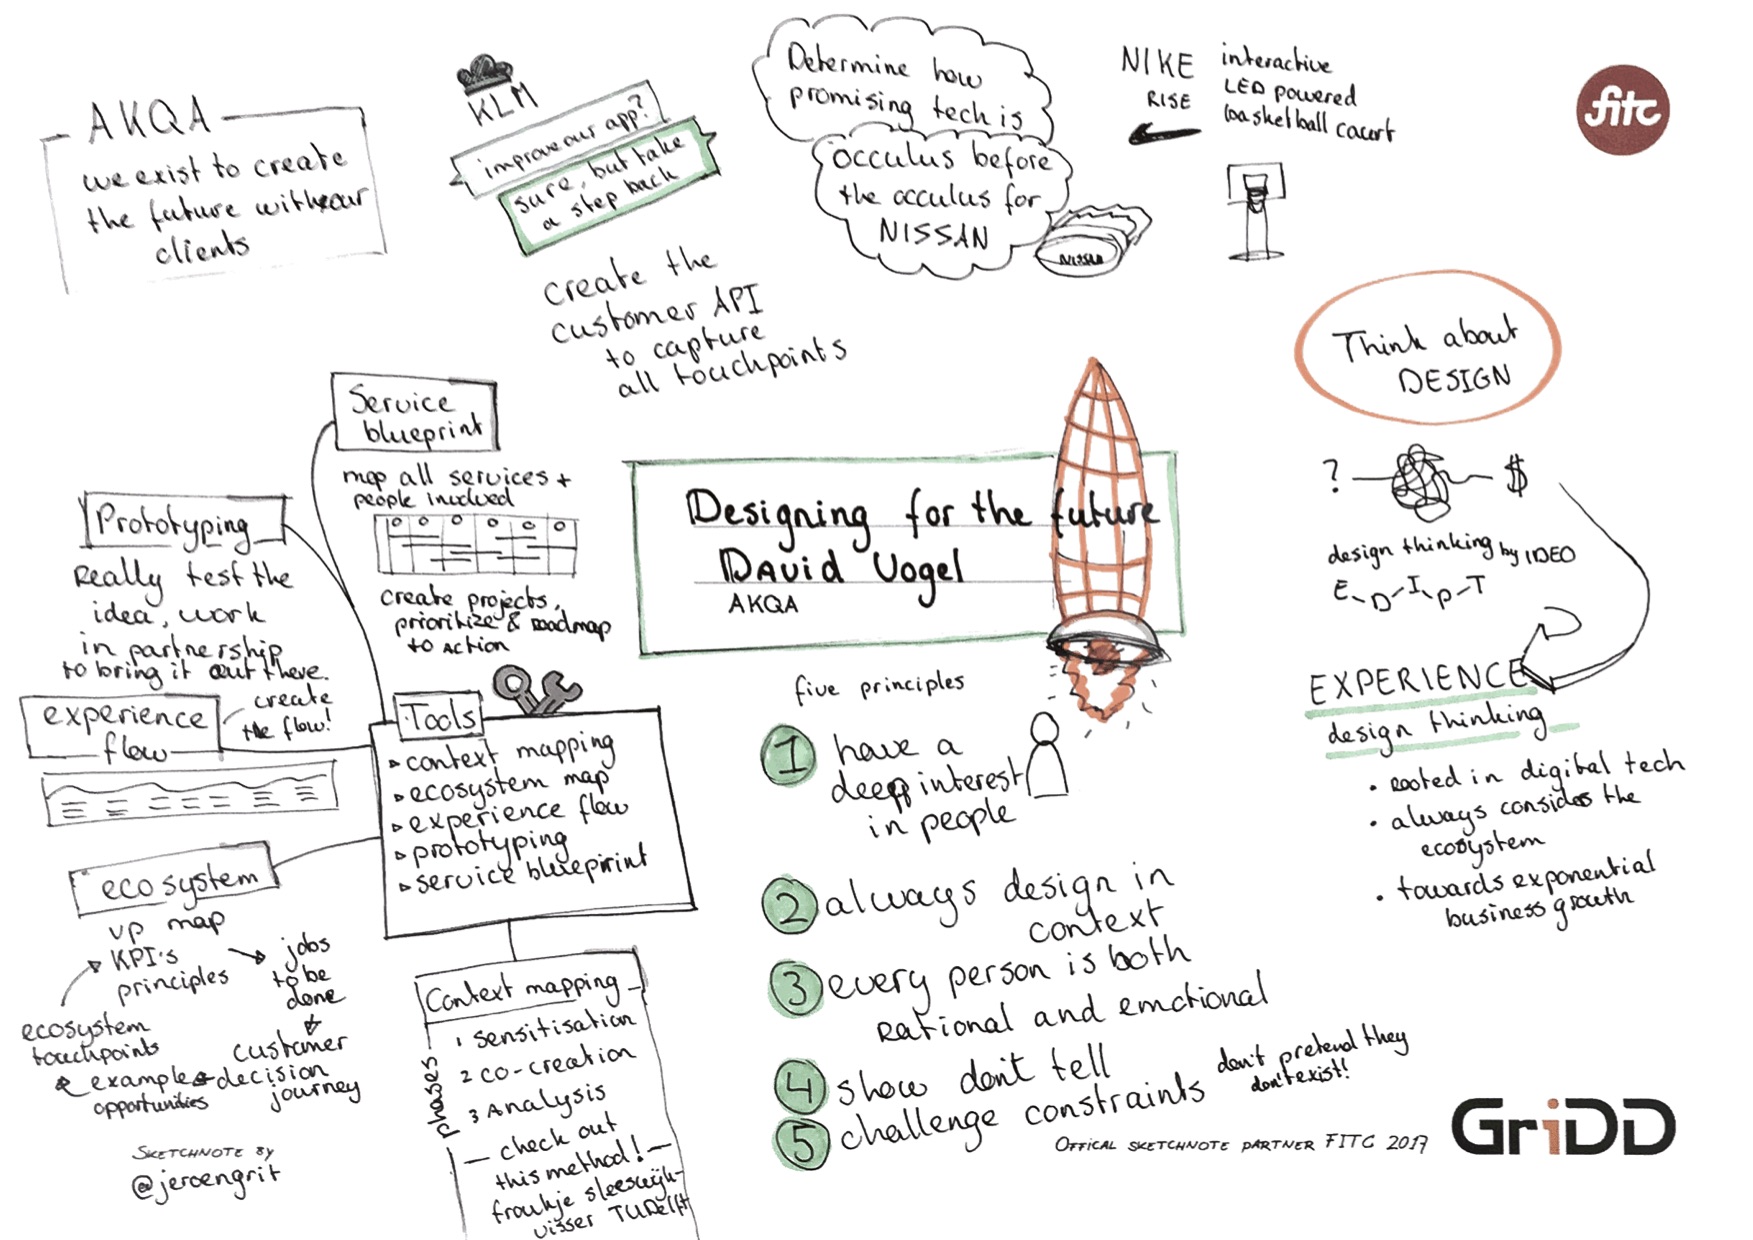 AKQA
we exist to create
the future with our
clients
KLM
improve our app?
sure, but take
a step back
create the
customer API
to capture
all touchpoints
Determine how
promising tech is
occulus before
the occulus for
NISSAN
NISSAN
NIKE
RISE
interactive
LED powered
basketball caurt
fitc
Think about
DESIGN
? $
design thinking by IDEO
E-D-I-P-T
EXPERIENCE
design thinking
• rooted in digital tech
• always consider the
ecosystem
• towards exponential
business growth
Designing for the future
David Vogel
AKQA
five principles
1 have a
deep interest
in people
2 always design in
context
3 every person is both
rational and emotional
4 show don't tell
5 challenge constraints
don't pretend they
don't exist!
Service
blueprint
map all services +
people involved
create projects,
prioritize & roadmap
to action
Prototyping
Really test the
idea, work
in partnership
to bring it out there.
experience
flow
create
the flow!
Tools
context mapping
ecosystem map
experience flow
prototyping
service blueprint
ecosystem
vp map
KPI's
principles
jobs
to be
done
customer
decision
journey
example
opportunities
ecosystem
touchpoints
Context mapping
phases
1 sensitisation
2 co-creation
3 Analysis
check out
this method!
froukje sleeswijk-
visser TUDelft
SKETCHNOTE BY
@jeroengrit
OFFICAL SKETCHNOTE PARTNER FITC 2017
GriDD